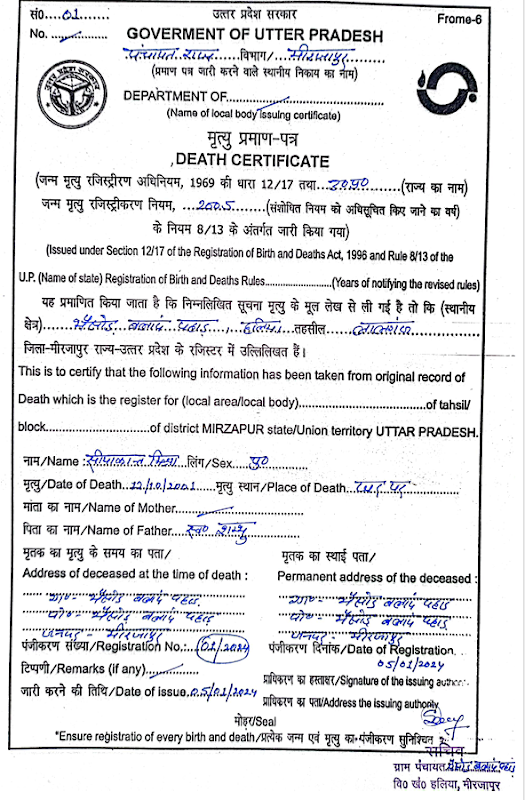 सं0.....01......
उत्तर प्रदेश सरकार
Frome-6
No. .....
GOVERMENT OF UTTER PRADESH
पंचायत राज विभाग/ मीरजापुर
(प्रमाण पत्र जारी करने वाले स्थानीय निकाय का नाम)
DEPARTMENT OF...............................
(Name of local body issuing certificate)
मृत्यु प्रमाण-पत्र
DEATH CERTIFICATE
(जन्म मृत्यु रजिस्ट्रीरण अधिनियम, 1969 की धारा 12/17 तथा...उ0प्र0.........(राज्य का नाम)
जन्म मृत्यु रजिस्ट्रीकरण नियम, ...2005......(संशोधित नियम को अधिसूचित किए जाने का वर्ष)
के नियम 8/13 के अंतर्गत जारी किया गया)
(Issued under Section 12/17 of the Registration of Birth and Deaths Act, 1996 and Rule 8/13 of the
U.P. (Name of state) Registration of Birth and Deaths Rules..................(Years of notifying the revised rules)
यह प्रमाणित किया जाता है कि निम्नलिखित सूचना मृत्यु के मूल लेख से ली गई है तो कि (स्थानीय
क्षेत्र)......भैसोड बलाय पहाड, हलिया..तहसील...लालगंज......
जिला-मीरजापुर राज्य-उत्तर प्रदेश के रजिस्टर में उल्लिलखित हैं।
This is to certify that the following information has been taken from original record of
Death which is the register for (local area/local body)..............................of tahsil/
block..............................of district MIRZAPUR state/Union territory UTTAR PRADESH.
नाम/Name : मिश्रा लिंग/Sex पु0
मृत्यु/Date of Death...12/10/2001......मृत्यु स्थान/Place of Death...घर पर
माता का नाम/Name of Mother..........
पिता का नाम/Name of Father...स्व0 शम्भु
मृतक का मृत्यु के समय का पता/
मृतक का स्थाई पता/
Address of deceased at the time of death :
Permanent address of the deceased :
ग्रा0- भैसोड बलाय पहाड
ग्रा0- भैसोड बलाय पहाड
पो0- भैसोड बलाय पहाड
पो0- भैसोड बलाय पहाड
जनपद- मीरजापुर
जनपद- मीरजापुर
पंजीकरण संख्या/Registration No.: 01/2024
पंजीकरण दिनांक/Date of Registration.
05/01/2024
टिप्पणी/Remarks (if any)..........
प्राधिकरण का हस्ताक्षर/Signature of the issuing author
जारी करने की तिथि/Date of issue.05/01/2024
प्राधिकरण का पता/Address the issuing authority
मोहर/Seal
*Ensure registratio of every birth and death/प्रत्येक जन्म एवं मृत्यु का पंजीकरण सुनिश्चित
सचिव
ग्राम पंचायत भैसोड बलाय पहाड
वि0 खं0 हलिया, मीरजापुर